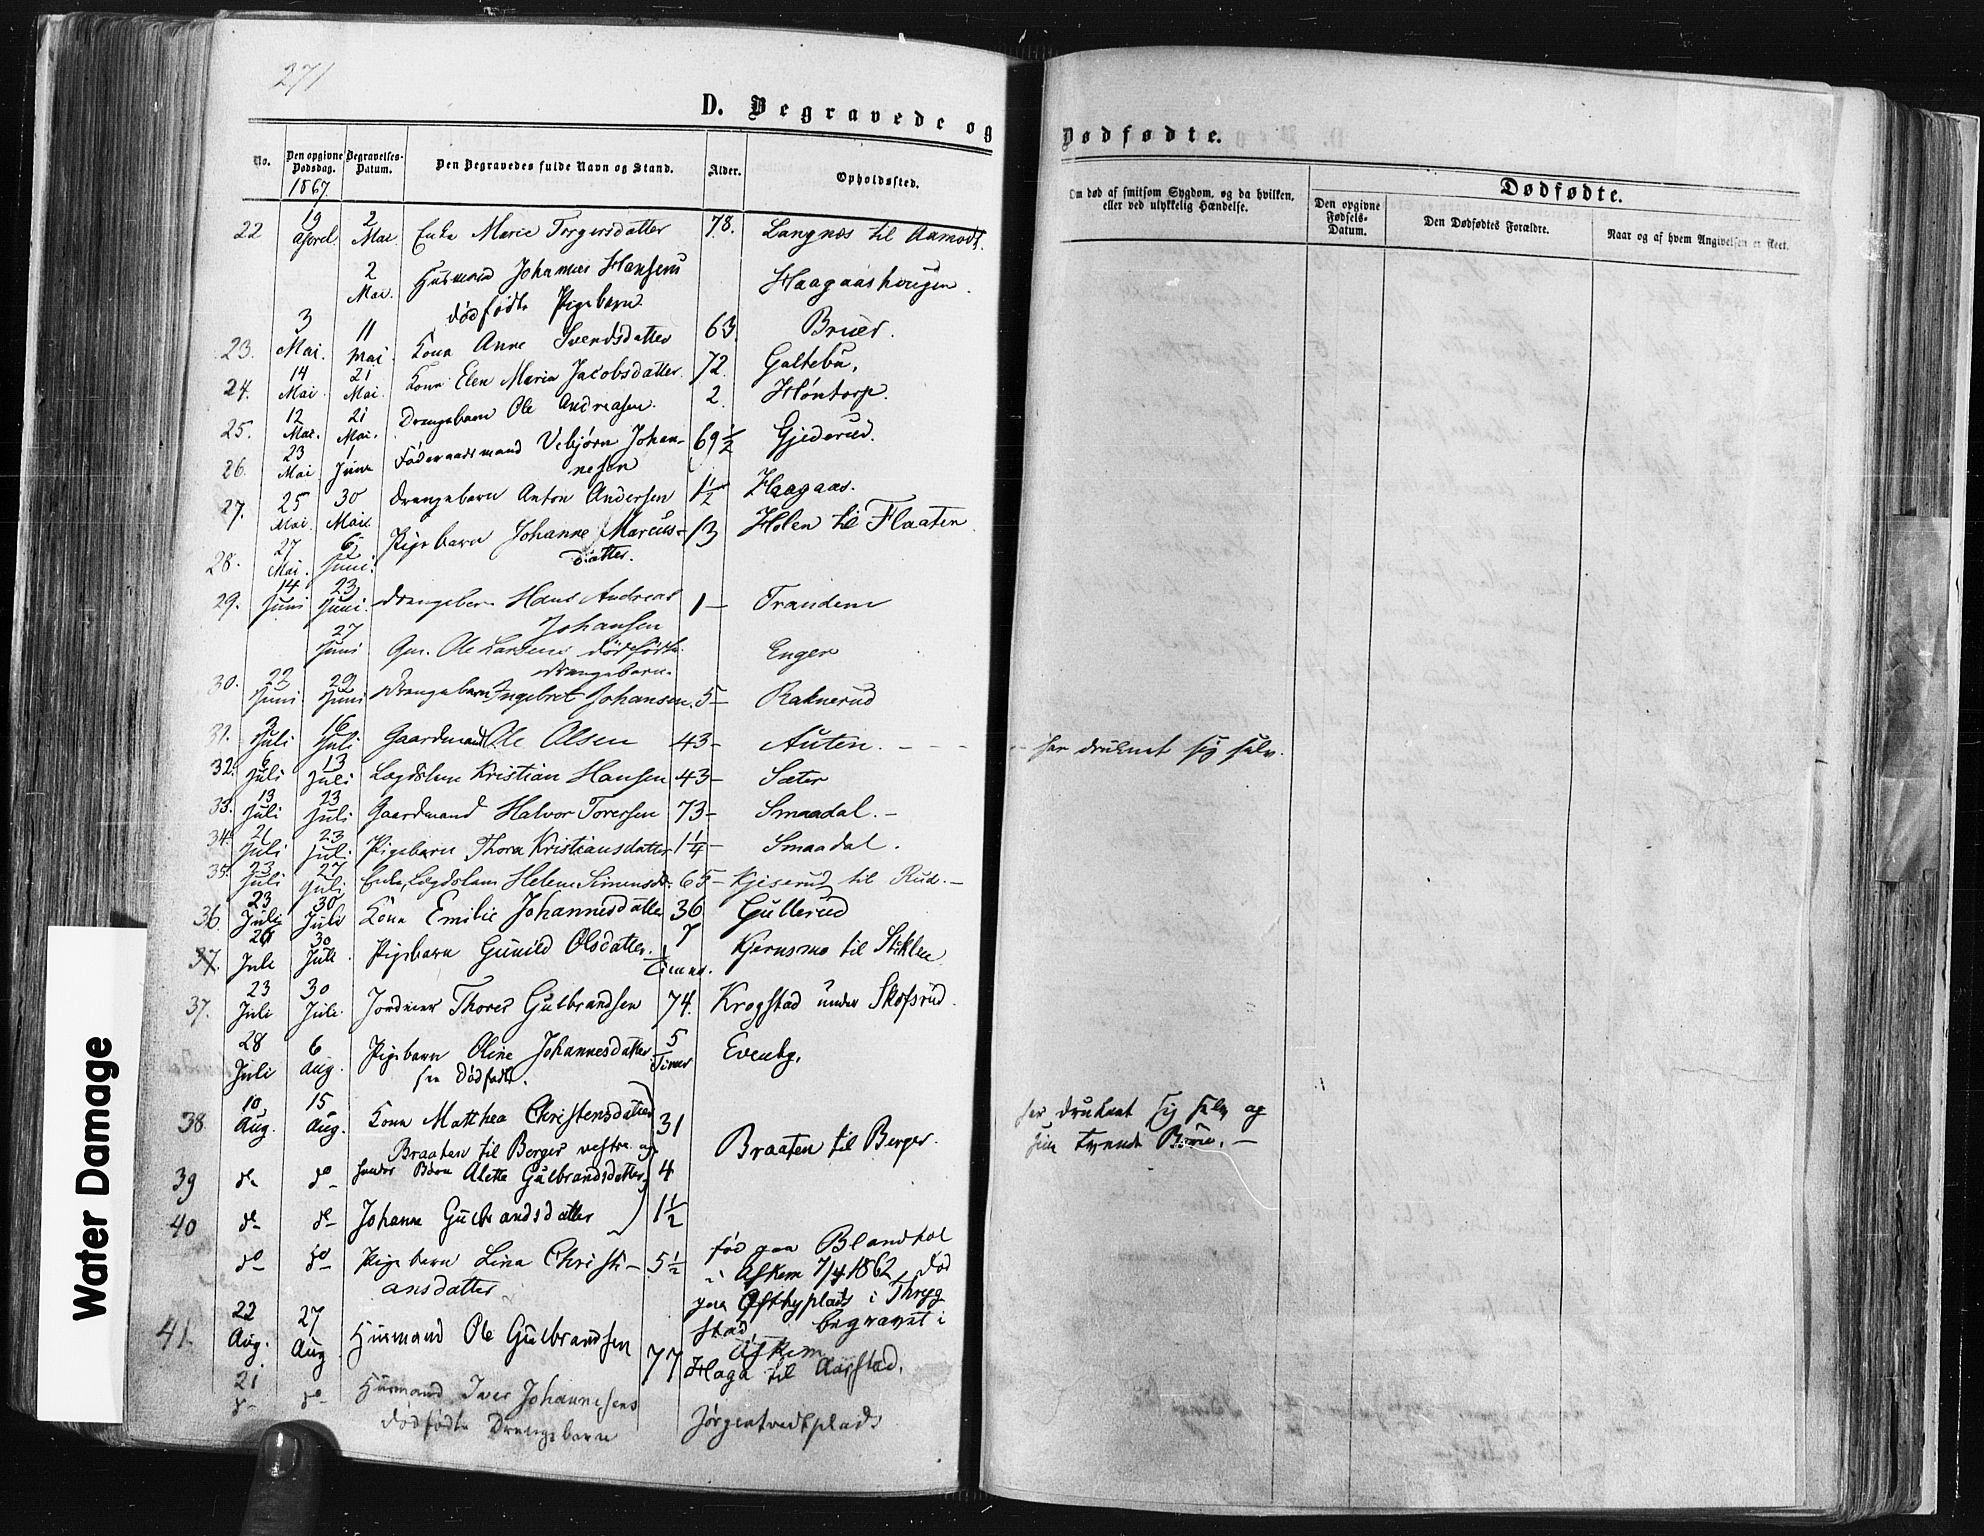 271
D. Begravede og
Dødfødte.
No.
Den opgivne Dødsdag.
1867.
Begravelses-Datum.
Den Begravedes fulde Navn og Stand.
Alder.
Opholdssted.
Om død af smitsom Sygdom, og da hvilken, eller ved ulykkelig Hændelse.
Dødfødte.
Den opgivne Fødsels-Datum.
Den Dødfødtes Forældre.
Naar og af hvem Angivelsen er skeet.
22 19 April 2 Mai Enke Marie Torgersdatter 78. Langnæs til Aamodt.
2 Mai. Husmand Johannes Hansens Haagaashougen.
dødfødte Pigebarn.
23. 3 Mai. 11 Mai. Kona Anne Svendsdatter 63. Bruer.
24. 14 Mai. 21 Mai. Kona Elen Maria Jacobsdatter. 72. Galtebu.
25. 12 Mai. 21 Mai. Drengebarn Ole Andreasen. 2. Hóntorp.
26. 23 Mai 1 Juni Føderaadsmand Vebjørn Johan- 69 1/2 Gjederud.
nesen
27. 25 Mai. 30 Mai Drengebarn Anton Andersen 1 1/2 Haagaas.
28. 27 Mai. 6 Juni. Pigebarn Johanne Marcus- 13 Holen til Flaaten
datter.
29. 14 Juni 23 Juni. Drengebarn Hans Andreas 1 – Trandem
Johansen
27 Juni Gm. Ole Larsens dødfødte Enger
Drengebarn.
30. 22 Juni 29 Juni Drengebarn Ingebret Johansen. 5 – Raknerud
31. 2 Juli 16 Juli Gaardmand Ole Olsen 43 – Auten. – – – har druknet sig selv.
32. 6 Juli 13 Juli Lægdslem Kristian Hansen 43 – Sæter
33. 13 Juli 23 Juli Gaardmand Halvor Toversen 73 – Smaadal. –
34. 21 Juli 23 Juli Pigebarn Thora Kristiansdatter 1 1/4 – Smaadal.
35. 23 Juli 27 Juli Enke, Lægdslem Helene Simensdr. 65 – Kjiserud til Rud. –
36 23 Juli 30 Juli Kona Emilie Johannesdatter 36 Gullerud
37. 26 Juli 30 Juli Pigebarn Gunild Olsdatter. 7 Timer. Kjernsmo til Stiklen
37. 23 Juli 30 Juli. Jordeier Thorer Gulbrandsen 74. Krogstad under Skofsrud.
28 Juli 6 Aug. Pigebarn Oline Johannesdatter 5 Timer Evenby.
38 10 Aug. 15 Aug. Kona Matthea Christensdatter 31 Braaten til Berger. har druknet sig selv og
Braaten til Berger vestre og sine tvende Børn. –
39 do do hendes Børn Alette Gulbrandsdatter, 4
40 do do Johanne Gulbrandsdatter 1 1/2
do do Pigebarn Lina Christi- 5 1/2 fød paa Blandkol
ansdatter i Askem 7/4 1862, død
paa Østbyplads i Thryg
stad, begravet i
Askem
41. 22 Aug. 27 Aug Husmand Ole Gulbrandsen 77 Haga til Aarstad.
21 do do Husmand Iver Johannesens Jørgentvedtplads
dødfødte Drengebarn
Water Damage